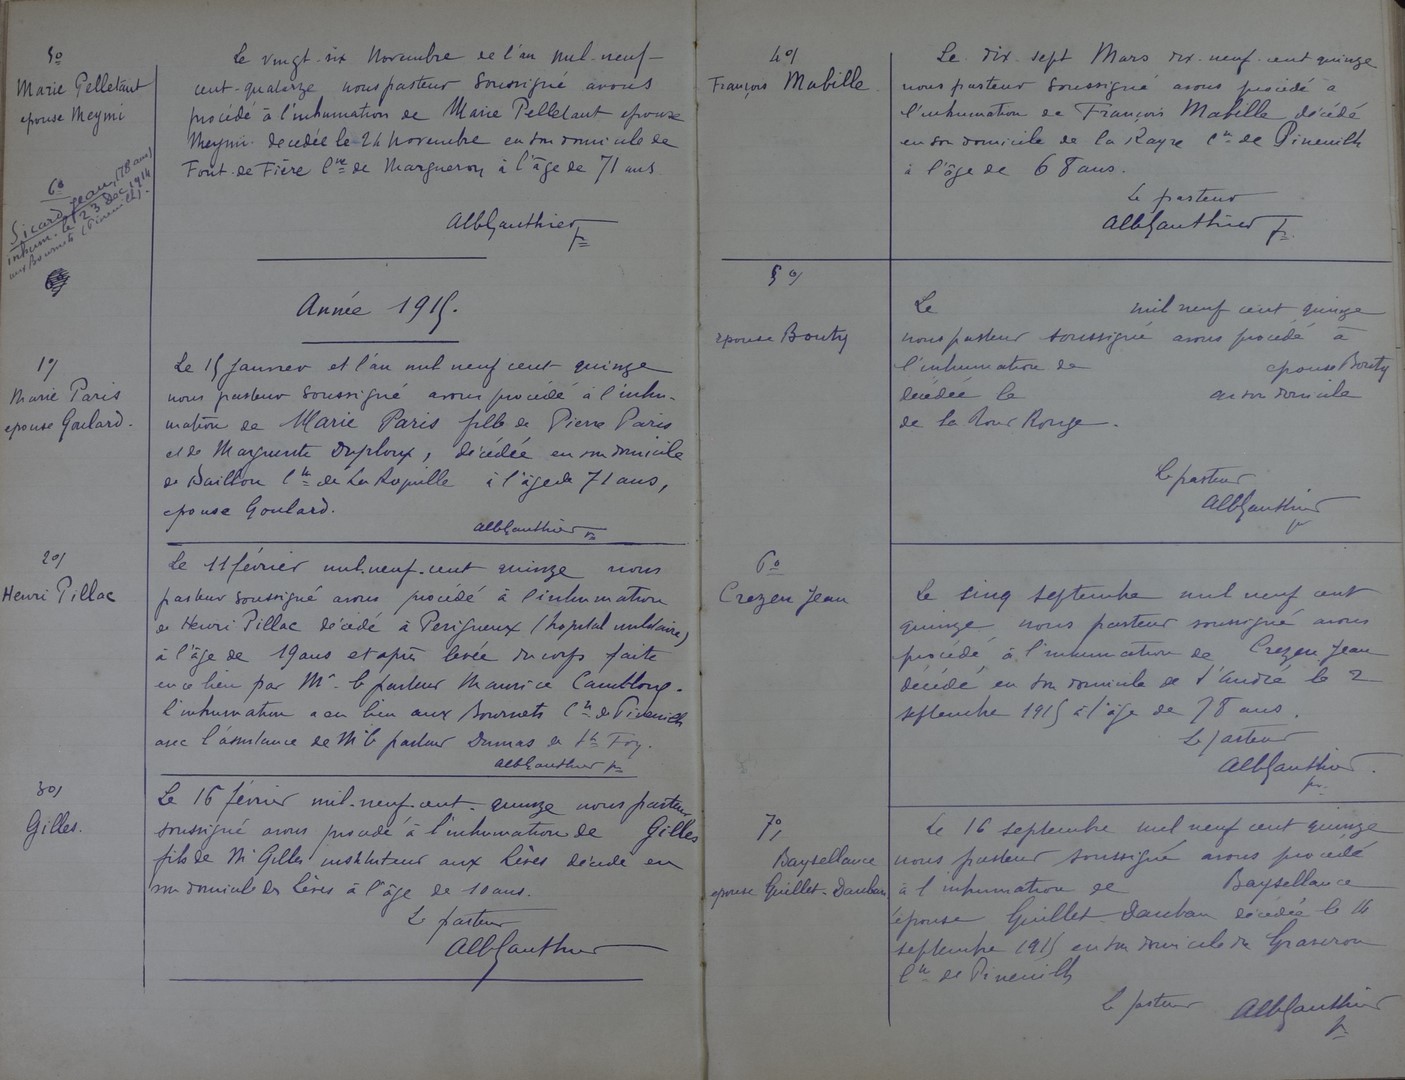 5o
Marie Pelletant
epouse Meymi
Le vingt-six Novembre de l'an mil-neuf-
cent-quatorze nous pasteur soussigné avons
procédé à l'inhumation de Marie Pelletant epouse
Meymi decedée le 24 Novembre en son domicile de
Font-de-Fière Cne de Margueron à l'âge de 71 ans
AlbGauthier p
6o
Sicard Jean (78 ans)
inhum. le 23 Dec 1914
aux Bournets (Pineuilh).
Année 1915.
1o/
Marie Paris
epouse Goulard.
Le 15 Janvier et l'an mil neuf cent quinze
nous pasteur soussigné avons procédé à l'inhu-
mation de Marie Paris fille de Pierre Paris
et de Marguerite Duploux, décédée en son domicile
de Baillon Cne de La Roquille à l'âge de 71 ans,
epouse Goulard.
AlbGauthier p
2o/
Henri Pillac
Le 11 février mil-neuf-cent quinze nous
pasteur soussigné avons procédé à l'inhumation
de Henri Pillac décédé à Perigueux (hopital militaire)
à l'âge de 19 ans et après levée du corps faite
en ce lieu par Mr le pasteur Maurice
l'inhumation a eu lieu aux Bournets Cne de Pineuilh
avec l'assistance de Mr le pasteur Dumas de Ste Foy.
AlbGauthier p
3o/
Gilles.
Le 16 février mil-neuf-cent-quinze nous pasteur
soussigné avons procédé à l'inhumation de Gilles
fils de Mr Gilles instituteur aux Lèves décédé en
son domicile des Lèves à l'âge de 10 ans.
Le pasteur
AlbGauthier
4o/
François Mabille
Le dix-sept Mars dix-neuf-cent quinze
nous pasteur soussigné avons procédé à
l'inhumation de François Mabille décédé
en son domicile de la Rayre Cne de Pineuilh
à l'âge de 68 ans.
Le pasteur
AlbGauthier p
5o/
epouse Bouty
Le mil neuf cent quinze
nous pasteur soussigné avons procédé à
l'inhumation de epouse Bouty
décédée le en son domicile
de La Tour Rouge.
Le pasteur
AlbGauthier
p
6o
Crezen Jean
Le cinq septembre mil neuf cent
quinze nous pasteur soussigné avons
procédé à l'inhumation de Crezen Jean
décédé en son domicile de St André le 2
septembre 1915 à l'âge de 78 ans.
Le pasteur
AlbGauthier.
p
7o/
Baysellance
epouse Guillet-Dauban
Le 16 septembre mil neuf cent quinze
nous pasteur soussigné avons procédé
à l'inhumation de Baysellance
épouse Guillet-Dauban décédée le 14
septembre 1915 en son domicile du
Cne de Pineuilh
Le pasteur AlbGauthier
p